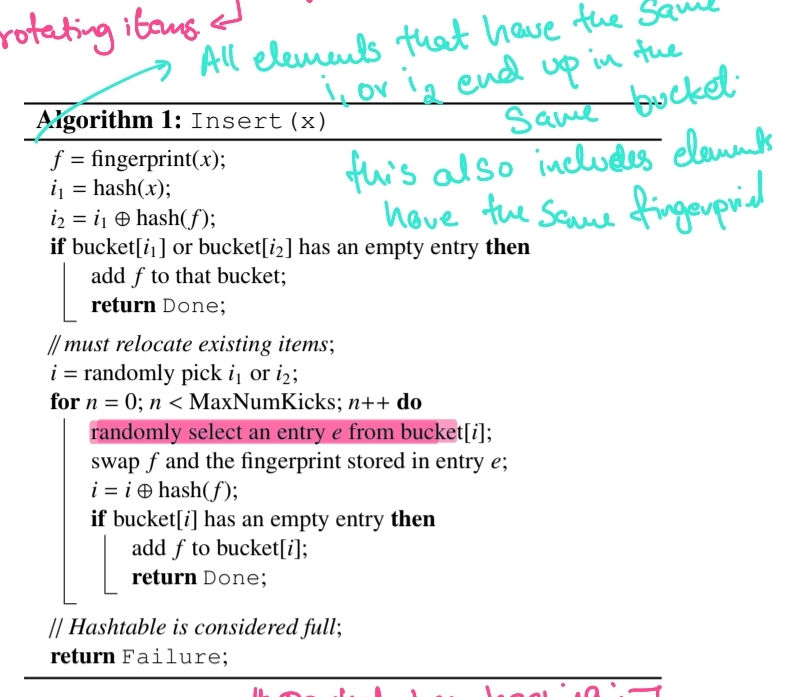 rotating items
All elements that have the same
i₁ or i₂ end up in the
same bucket.
this also includes elements
have the same fingerprint
Algorithm 1: Insert(x)
f = fingerprint(x);
i₁ = hash(x);
i₂ = i₁ ⊕ hash(f);
if bucket[i₁] or bucket[i₂] has an empty entry then
add f to that bucket;
return Done;
// must relocate existing items;
i = randomly pick i₁ or i₂;
for n = 0; n < MaxNumKicks; n++ do
randomly select an entry e from bucket[i];
swap f and the fingerprint stored in entry e;
i = i ⊕ hash(f);
if bucket[i] has an empty entry then
add f to bucket[i];
return Done;
// Hashtable is considered full;
return Failure;